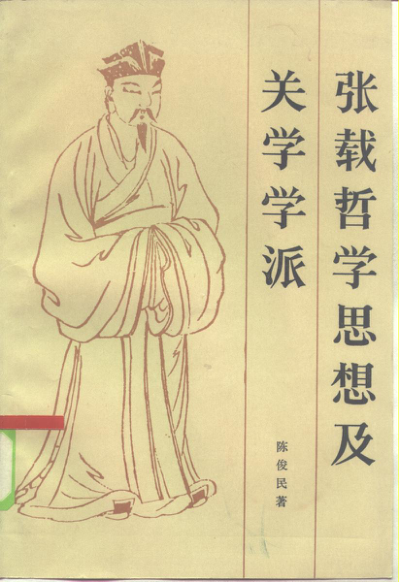 张载哲学思想及
关学学派
陈俊民著